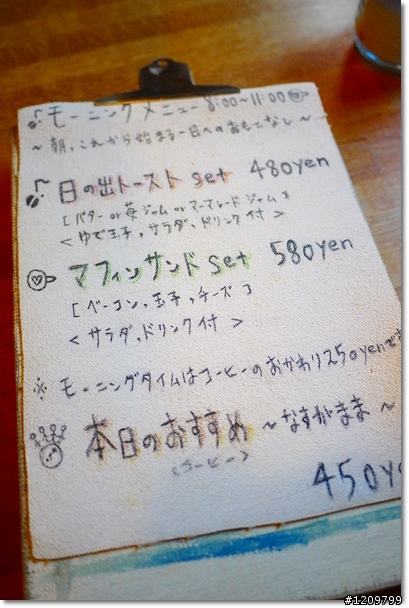 モーニングメニュー 8:00~11:00
~ 朝、これから始まる一日へのおもてなし ~
日の出トースト set 480yen
[バター or 苺ジャム or マーマレードジャム]
<ゆで玉子、サラダ、ドリンク付>
マフィンサンド set 580yen
[ベーコン、玉子、チーズ]
<サラダ、ドリンク付>
※ モーニングタイムはコーヒーのおかわり250yenです
本日のおすすめ ~なすがまま~
<コーヒー>
450y
#1209799